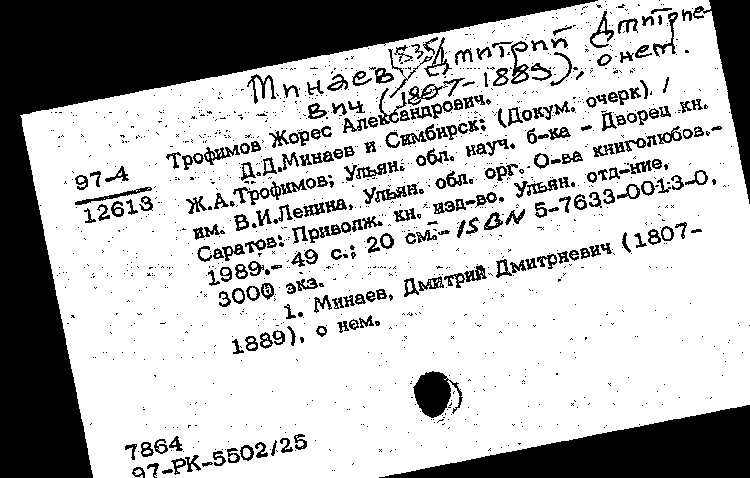 Минаев, Дмитрий Дмитрие-
вич (1835
1807-1889), о нем.
97-4
12613
Трофимов Жорес Александрович.
Д.Д.Минаев и Симбирск: (Докум. очерк) /
Ж.А.Трофимов; Ульян. обл. науч. б-ка - Дворец кн.
им. В.И.Ленина, Ульян. обл. орг. О-ва книголюбов.-
Саратов: Приволж. кн. изд-во. Ульян. отд-ние,
1989.- 49 с.; 20 см.- ISBN 5-7633-0013-0,
3000 экз.
1. Минаев, Дмитрий Дмитриевич (1807-
1889), о нем.
7864
97-РК-5502/25